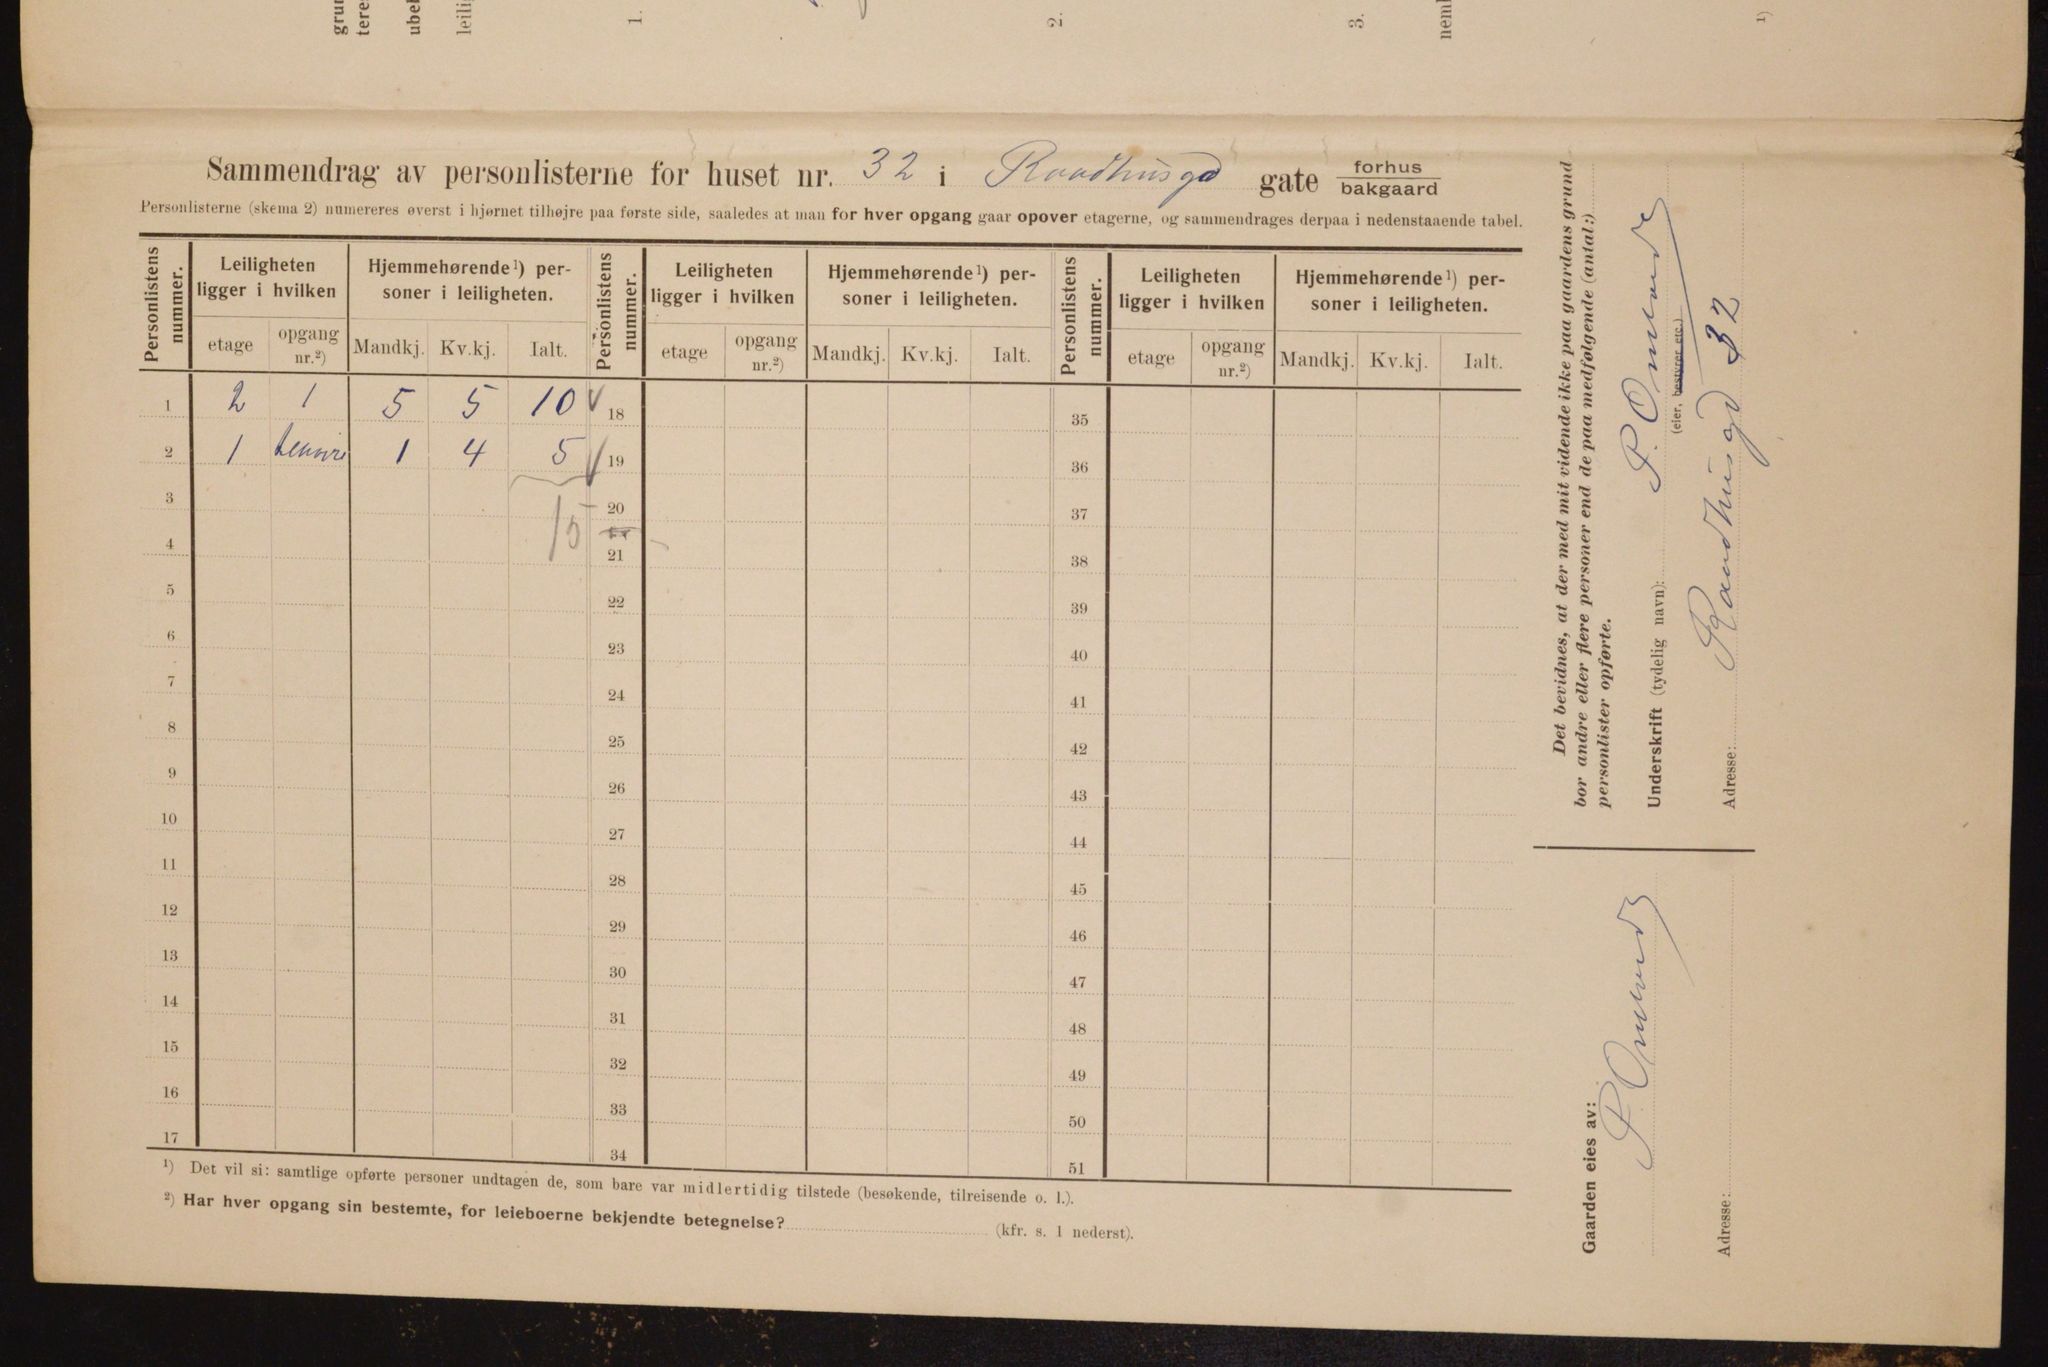 Sammendrag av personlisterne for huset nr. 32 i Raadhusgd gate forhus
bakgaard
Personlisterne (skema 2) numereres øverst i hjørnet tilhøjre paa første side, saaledes at man for hver opgang gaar opover etagerne, og sammendrages derpaa i nedenstaaende tabel.
Personlistens nummer. Leiligheten ligger i hvilken Hjemmehørende¹) personer i leiligheten. Personlistens nummer. Leiligheten ligger i hvilken Hjemmehørende¹) personer i leiligheten. Personlistens nummer. Leiligheten ligger i hvilken Hjemmehørende¹) personer i leiligheten.
etage opgang nr.²) Mandkj. Kv.kj. Ialt. etage opgang nr.²) Mandkj. Kv.kj. Ialt. etage opgang nr.²) Mandkj. Kv.kj. Ialt.
1 2 1 5 5 10 18 35
2 1 1 4 5 19 36
3 15 20 37
4 21 38
5 22 39
6 23 40
7 24 41
8 25 42
9 26 43
10 27 44
11 28 45
12 29 46
13 30 47
14 31 48
15 32 49
16 33 50
17 34 51
¹) Det vil si: samtlige opførte personer undtagen de, som bare var midlertidig tilstede (besøkende, tilreisende o. l.).
²) Har hver opgang sin bestemte, for leieboerne bekjendte betegnelse? (kfr. s. 1 nederst).
Det bevidnes, at der med mit vidende ikke paa gaardens grund
bor andre eller flere personer end de paa medfølgende (antal:)
personlister opførte.
Underskrift (tydelig navn): P. Omundt
(eier, bestyrer etc.)
Adresse: Raadhusgd 32
Gaarden eies av: P. Omundt
Adresse:
grun
tere
ubel
leilig
1.
2.
3.
neml
¹)